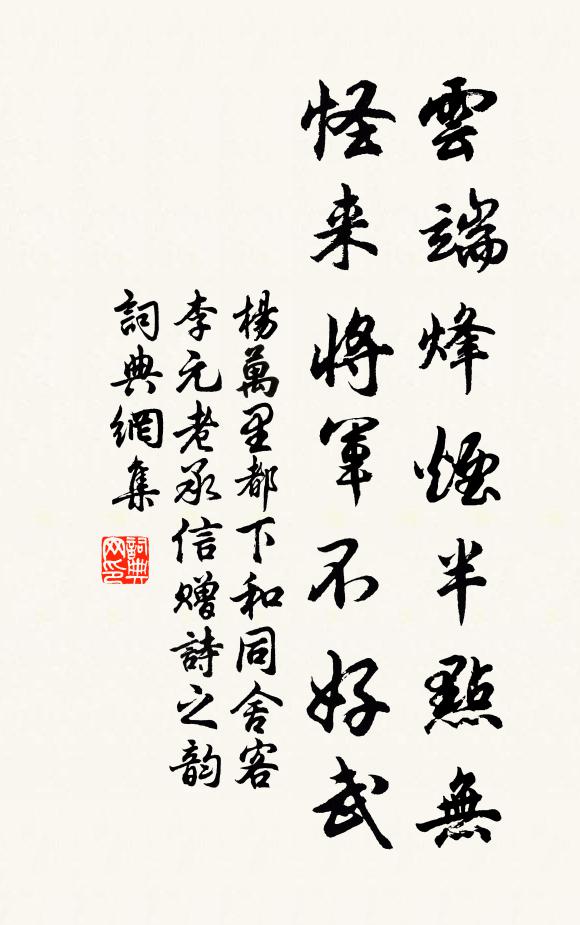 雲端烽煙半點無
怪来將軍不好武
楊萬里都下和同舍客
李元老承信贈詩之韵
詞典網集
詞典網印